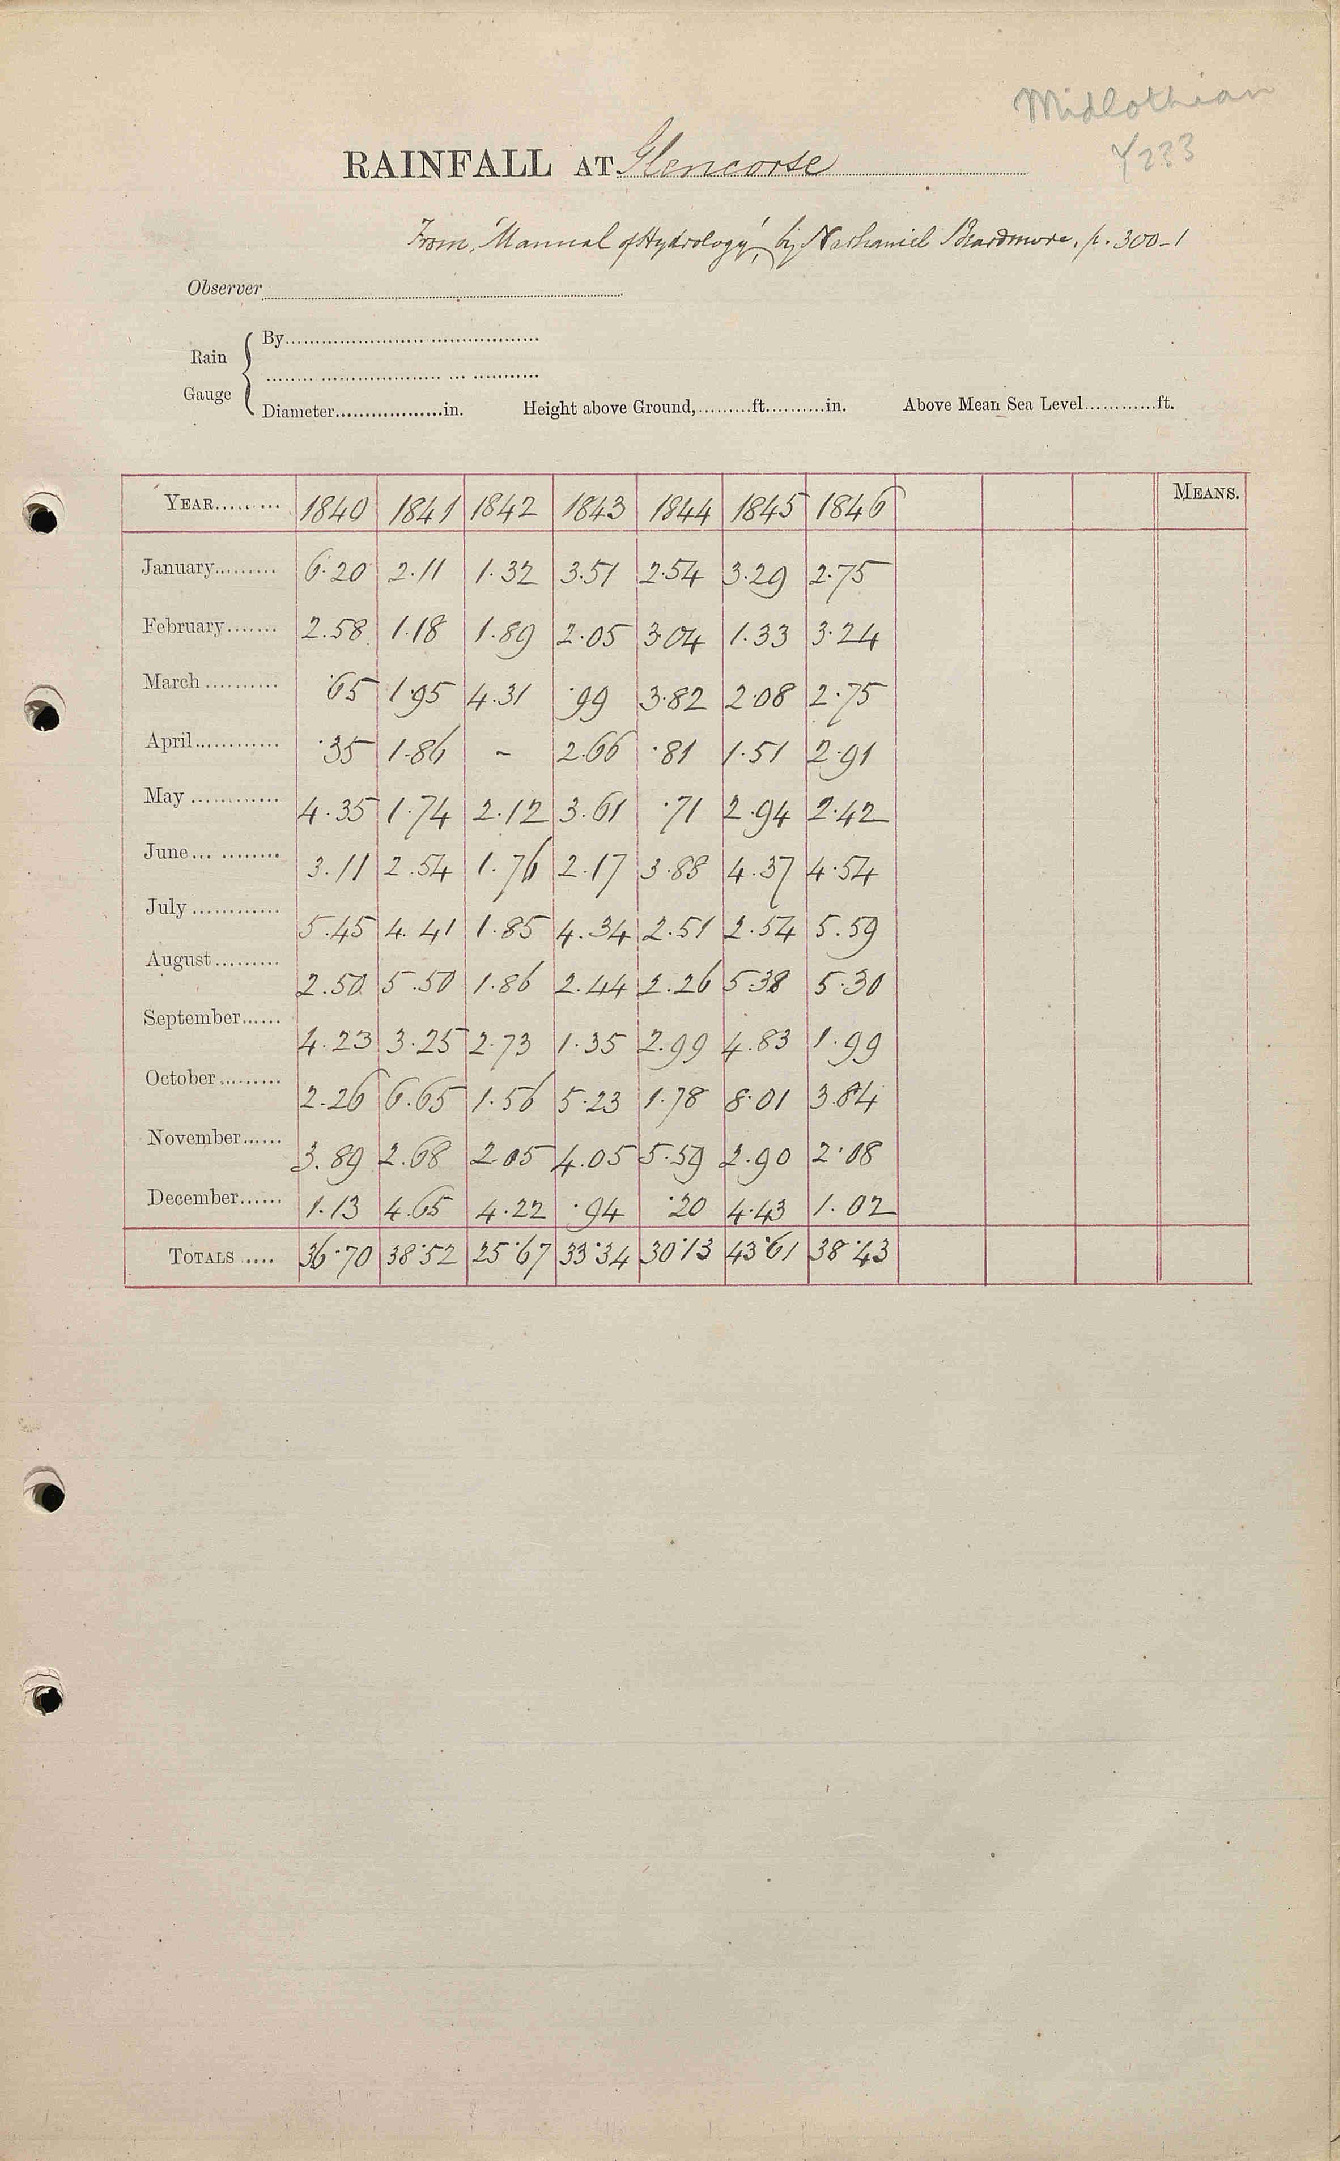 Midlothian
RAINFALL AT Glencorse
Y233
From 'Manual of Hydrology', by Nathaniel Beardmore, p. 300-1
Observer
By
Rain
Gauge
Diameter in. Height above Ground, ft. in. Above Mean Sea Level ft.
YEAR 1840 1841 1842 1843 1844 1845 1846 MEANS.
January 6.20 2.11 1.32 3.51 2.54 3.29 2.75
February 2.58 1.18 1.89 2.05 3.04 1.33 3.24
March .65 1.95 4.31 .99 3.82 2.08 2.75
April .35 1.86 - 2.66 .81 1.51 2.91
May 4.35 1.74 2.12 3.61 .71 2.94 2.42
June 3.11 2.54 1.76 2.17 3.88 4.37 4.54
July 5.45 4.41 1.85 4.34 2.51 2.54 5.59
August 2.50 5.50 1.86 2.44 2.26 5.38 5.30
September 4.23 3.25 2.73 1.35 2.99 4.83 1.99
October 2.26 6.65 1.56 5.23 1.78 8.01 3.84
November 3.89 2.68 2.05 4.05 5.59 2.90 2.08
December 1.13 4.65 4.22 .94 .20 4.43 1.02
TOTALS 36.70 38.52 25.67 33.34 30.13 43.61 38.43